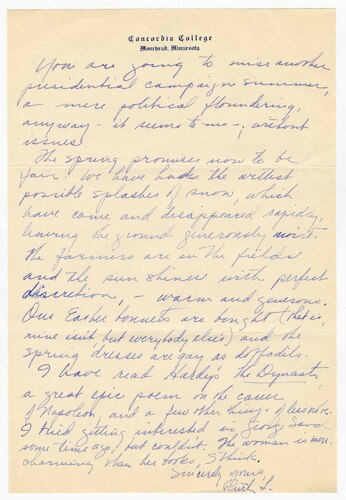 Concordia College
Moorhead, Minnesota
You are going to miss another
presidential campaign summer,
a mere political floundering,
anyway - it seems to me -, without
issues.
The spring promises now to be
fair. We have had the
possible splashes of snow, which
have come and disappeared rapidly,
leaving the ground generously moist.
The farmers are in the fields
and the sun shines with perfect
discretion, - warm and generous.
Our Easter bonnets are bought (that is,
mine isn't, but everybody else's) and the
spring dresses are gay as daffodils.
I have read Hardy's the Dynasts,
a great epic poem on the career
of Napoleon, and a few other things of less note.
I tried getting interested in George Sand
some time ago, but couldn't. The woman is more
charming than her books, I think.
Sincerely yours
Ruth